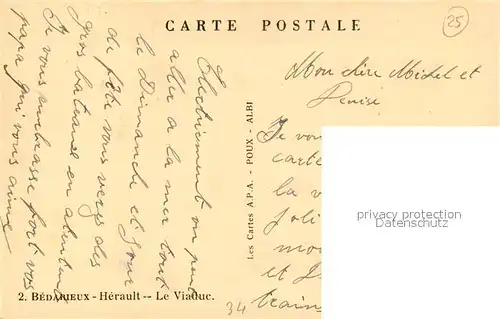 CARTE POSTALE
25
Mon chère Michel et
Denise
Je vou
carte
la v
joli
mo
et D
train
34
privacy protection
Datenschutz
Les Cartes A.P.A. - POUX - ALBI
on peut
aller a la mer tout
le Dimanche et jour
de fête vous verez des
gros bateaux en attendant
Je vous embrasse fort vos
papa qui vous aime
2. BÉDARIEUX - Hérault -- Le Viaduc.